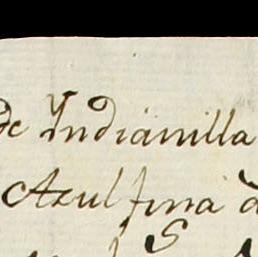 de Yndianilla
Azul fina d
S